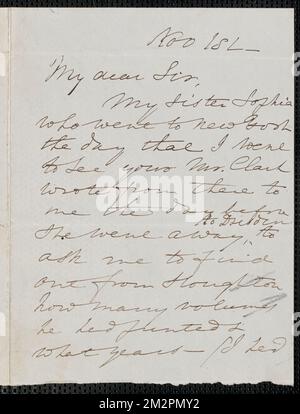 Nov 1st—
My dear Sir,
My Sister Sophia
who went to New York
the day that I went
to see you Mr. Clark
wrote from there to
me the day before
to Dresden
she went away, to
ask me to find
out from Houghton
how many volumes
he had printed &
what years— I had
alamy
Image ID: 2M2PMY2
www.alamy.com